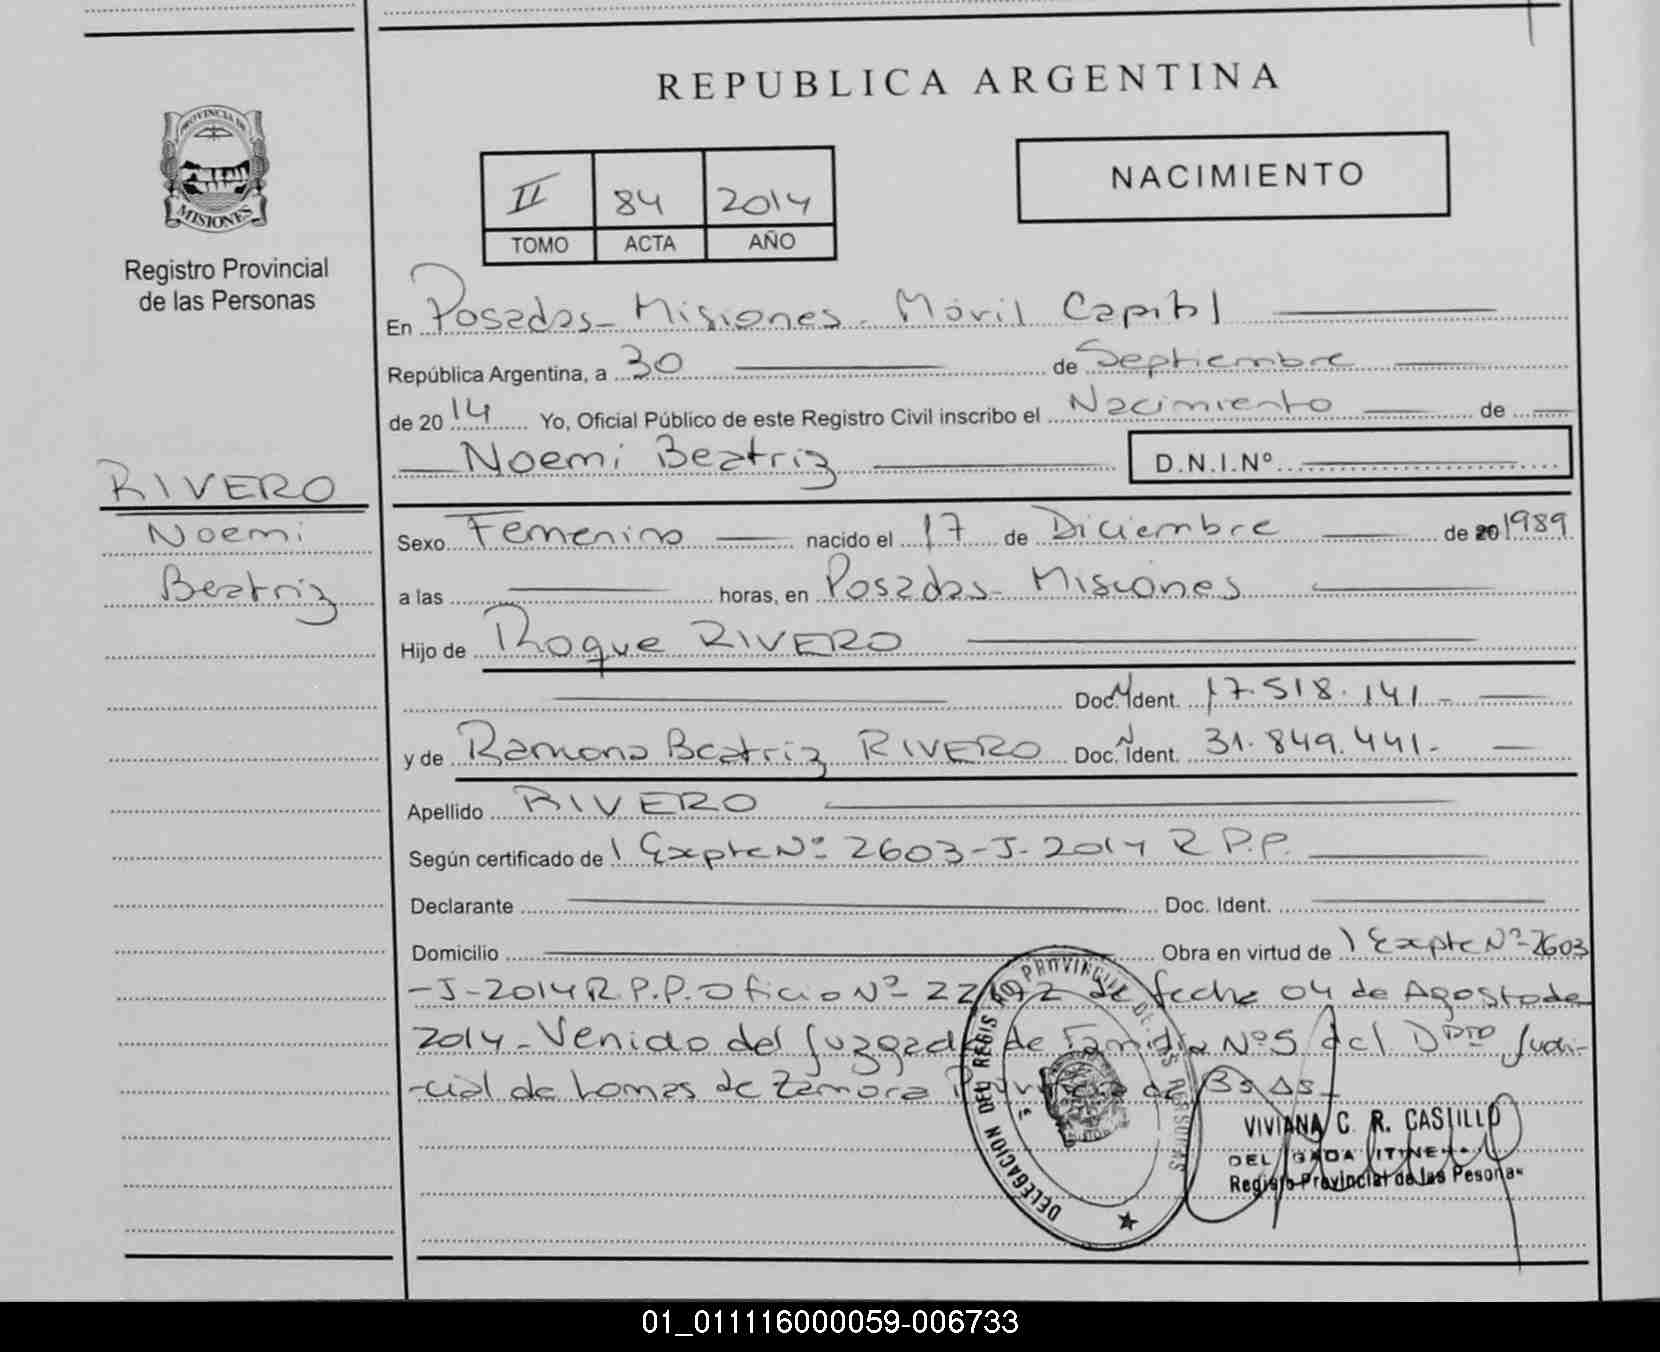 REPUBLICA ARGENTINA
PROVINCIA DE
MISIONES
Registro Provincial
de las Personas
II 84 2014
TOMO ACTA AÑO
NACIMIENTO
En Posadas - Misiones - Móvil Capital
República Argentina, a 30 de Septiembre
de 2014 Yo, Oficial Público de este Registro Civil inscribo el Nacimiento de
Noemi Beatriz D.N.I.Nº
RIVERO
Noemi
Beatriz
Sexo Femenino nacido el 17 de Diciembre de 20 1989
a las horas, en Posadas - Misiones
Hijo de Roque RIVERO
Doc. Ident. 17.518.141.-
y de Ramona Beatriz RIVERO Doc. Ident. 31.849.441.-
Apellido RIVERO
Según certificado de Expte Nº 2603-J-2014 R.P.P.
Declarante Doc. Ident.
Domicilio Obra en virtud de Expte Nº 2603
-J-2014 R.P.P. Oficio Nº de fecha 04 de Agosto de
2014 - Venido del Juzgado de Familia Nº 5 del Dpto Judi-
-cial de Lomas de Zamora Provincia de Bs As -
DELEGACION DEL REGISTRO PROVINCIAL DE LAS PERSONAS
VIVIANA C. R. CASTILLO
DELEGADA ITINE
Registro Provincial de las Pesonas
01_011116000059-006733